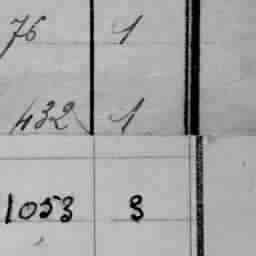 76 1
432 1
1053 3